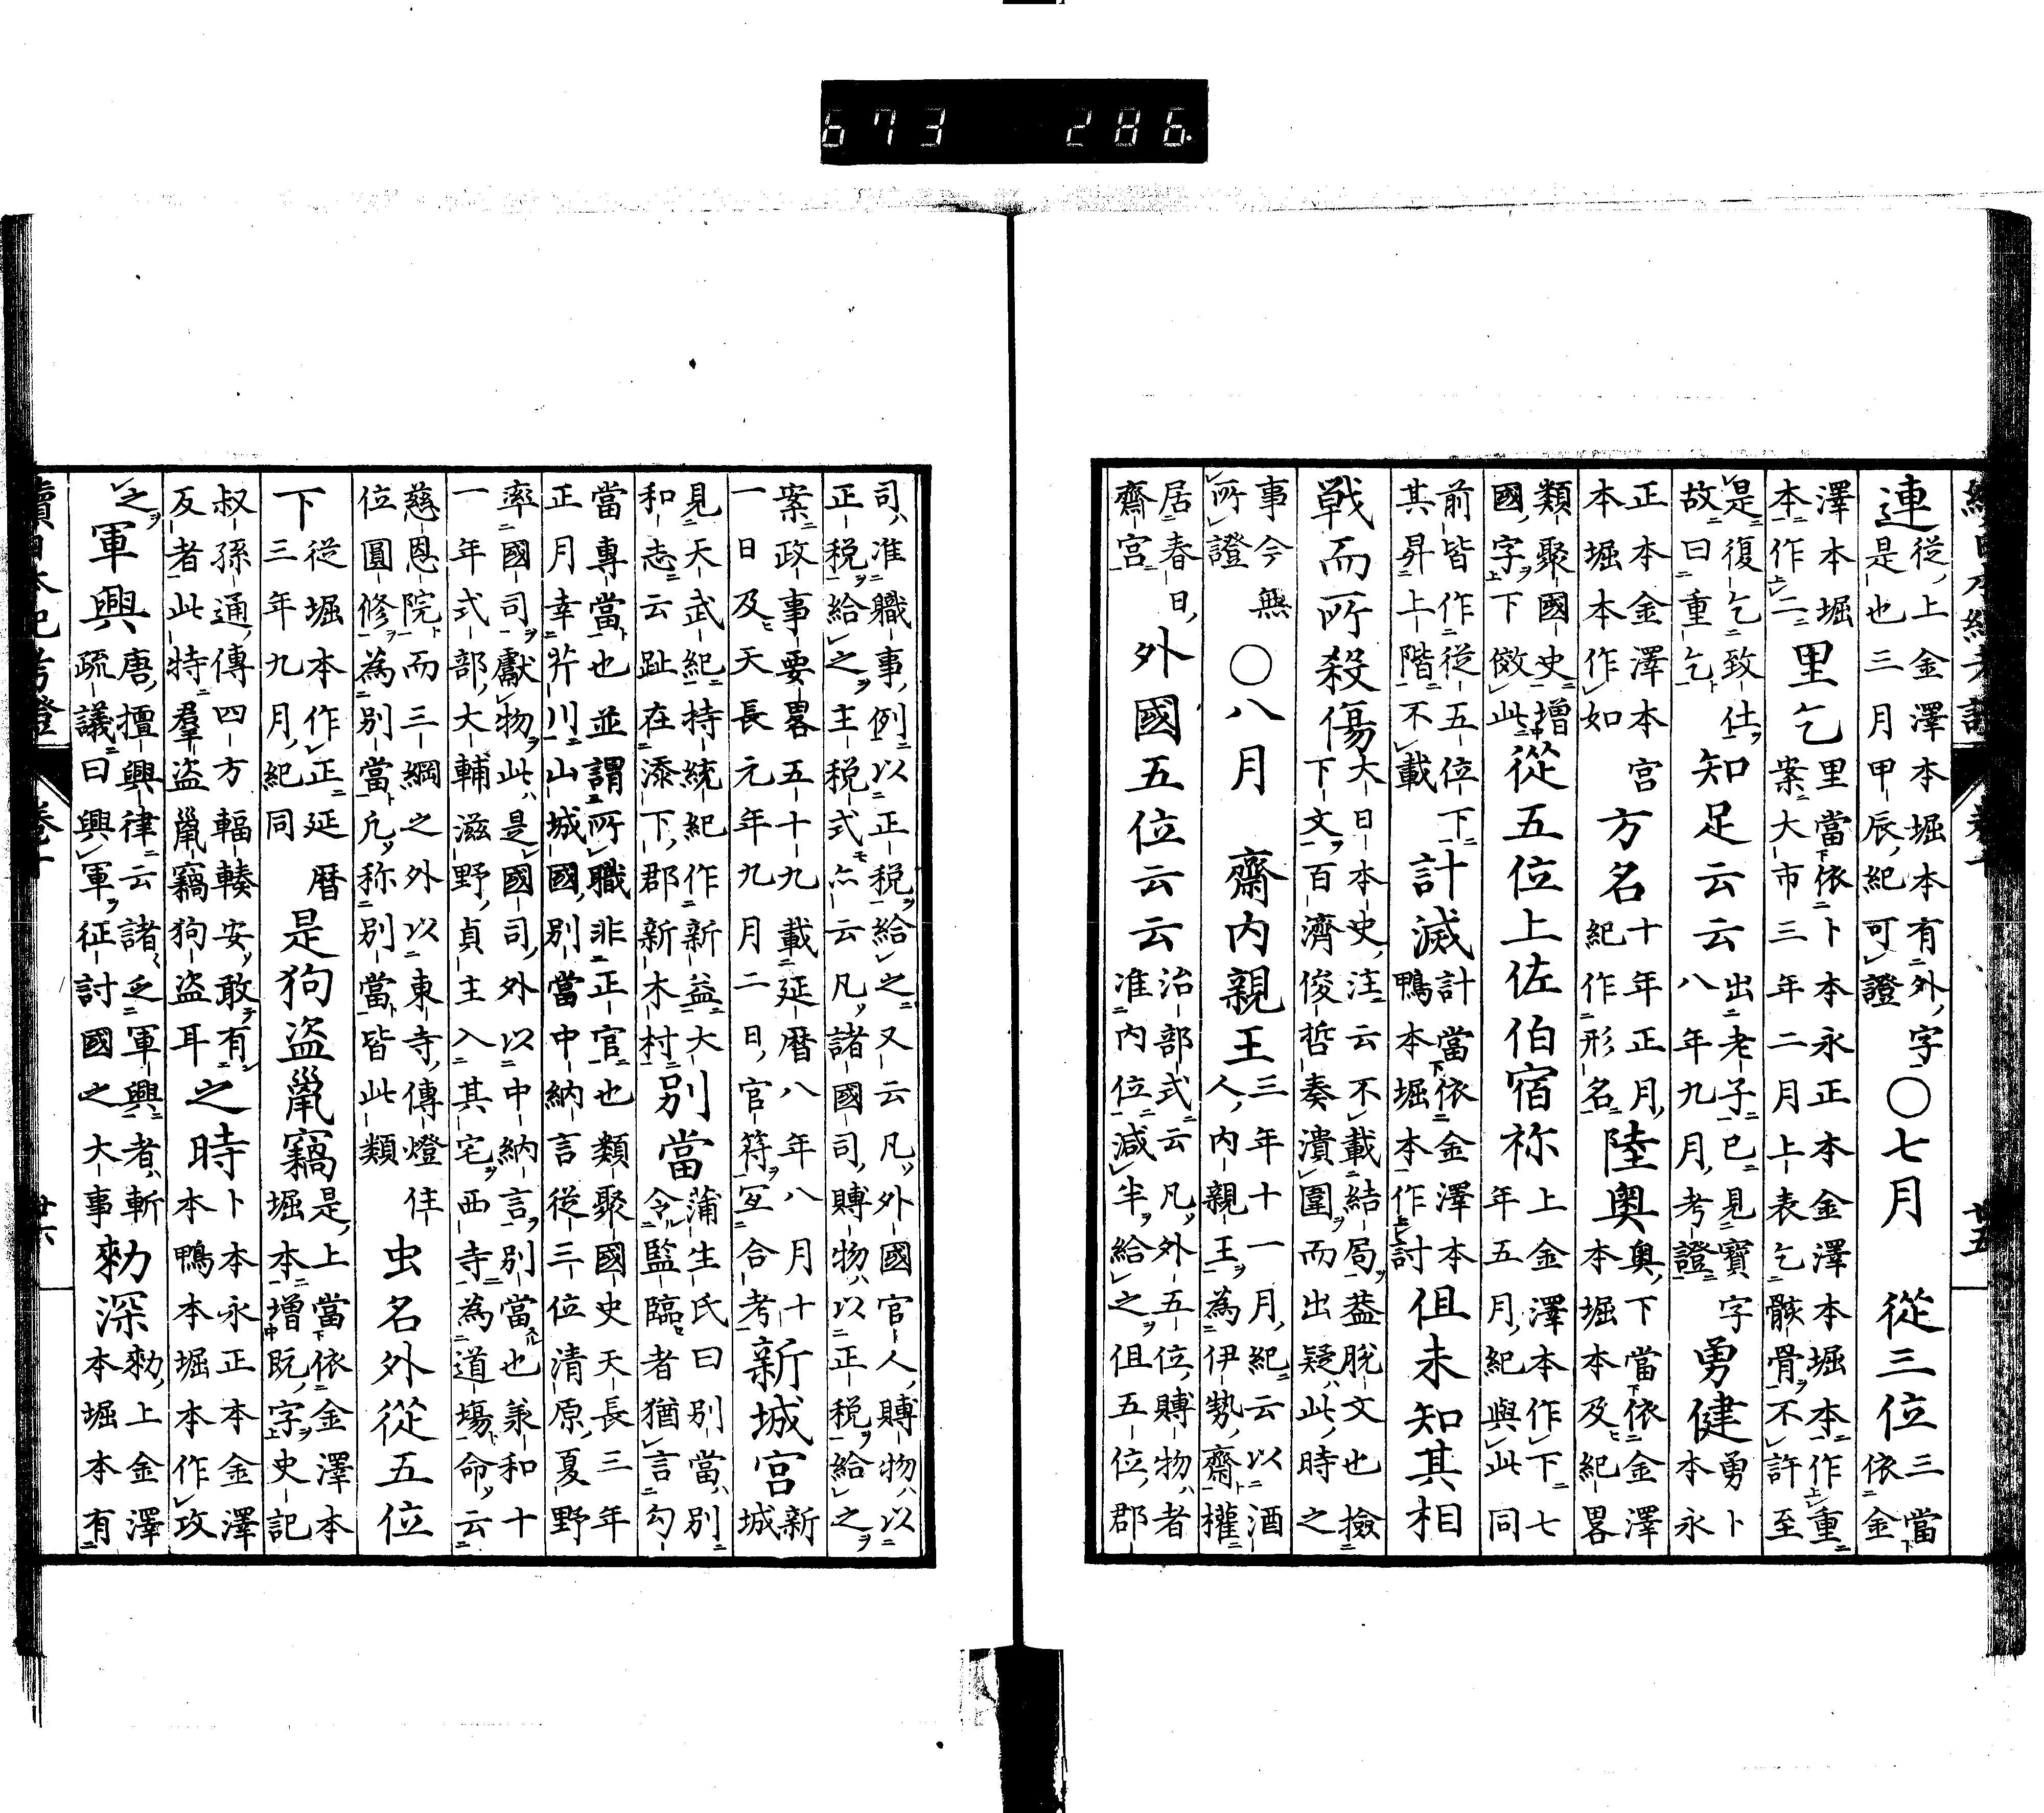 673 286
連 從上金澤本堀本有外字 ○七月 從三位 三當依金
是也三月甲辰紀可證
澤本堀本作二 里乞 里當依卜本永正本金澤本堀本作重
案大市三年二月上表乞骸骨不許至
是復乞致仕故曰重乞 知足云云 出老子已見寶字八年九月考證 勇健 勇卜本永
正本金澤本宮本堀本作如 方名 十年正月紀作形名 陸奧 奧下當依金澤本堀本及紀畧
類聚國史增國字下傚此 從五位上佐伯宿祢 上金澤本作下七年五月紀與此同
前皆作從五位下其昇上階不載 計滅 計當依金澤本鴨本堀本作討 但未知其相
戰而所殺傷 大日本史注云不載結局蓋脫文也撿下文百濟俊哲奏潰圍而出疑此時之
事今無所證 ○八月 齋內親王 三年十一月紀云以酒人內親王為伊勢齋權
居春日齋宮 外國五位云云 治部式云凡外五位賻物者准內位減半給之但五位郡
司准職事例以正税給之又云凡外國官人賻物以
正税給之主税式亦云凡諸國司賻物以正税給之
案政事要畧五十九載延曆八年八月十一日及天長元年九月二日官符宜合考 新城宮 新城
見天武紀持統紀作新益大和志云趾在添下郡新木村 別當 蒲生氏曰別當別令監臨者猶言勾
當專當也並謂所職非正官也類聚國史天長三年
正月幸芹川山城國別當中納言從三位清原夏野
率國司獻物此是國司外以中納言別當也承和十
一年式部大輔滋野貞主入其宅西寺為道場命云
慈恩院而三綱之外以東寺傳燈住位圓修為別當凡称別當皆此類 虫名外從五位
下 從堀本作正延曆三年九月紀同 是狗盜鼠竊 是上當依金澤本堀本增既字史記
叔孫通傳四方輻輳安敢有反者此特羣盜鼠竊狗盜耳 之時 卜本永正本金澤本鴨本堀本作攻
之 軍興 唐擅興律云諸乏軍興者斬疏議曰興軍征討國之大事 勅深 勅上金澤本堀本有